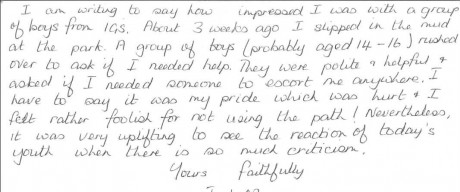 I am writing to say how impressed I was with a group
of boys from IGS. About 3 weeks ago I slipped in the mud
at the park. A group of boys (probably aged 14-16) rushed
over to ask if I needed help. They were polite & helpful &
asked if I needed someone to escort me anywhere. I
have to say it was my pride which was hurt & I
felt rather foolish for not using the path! Nevertheless,
it was very uplifting to see the reaction of today's
youth when there is so much criticism.
Yours faithfully